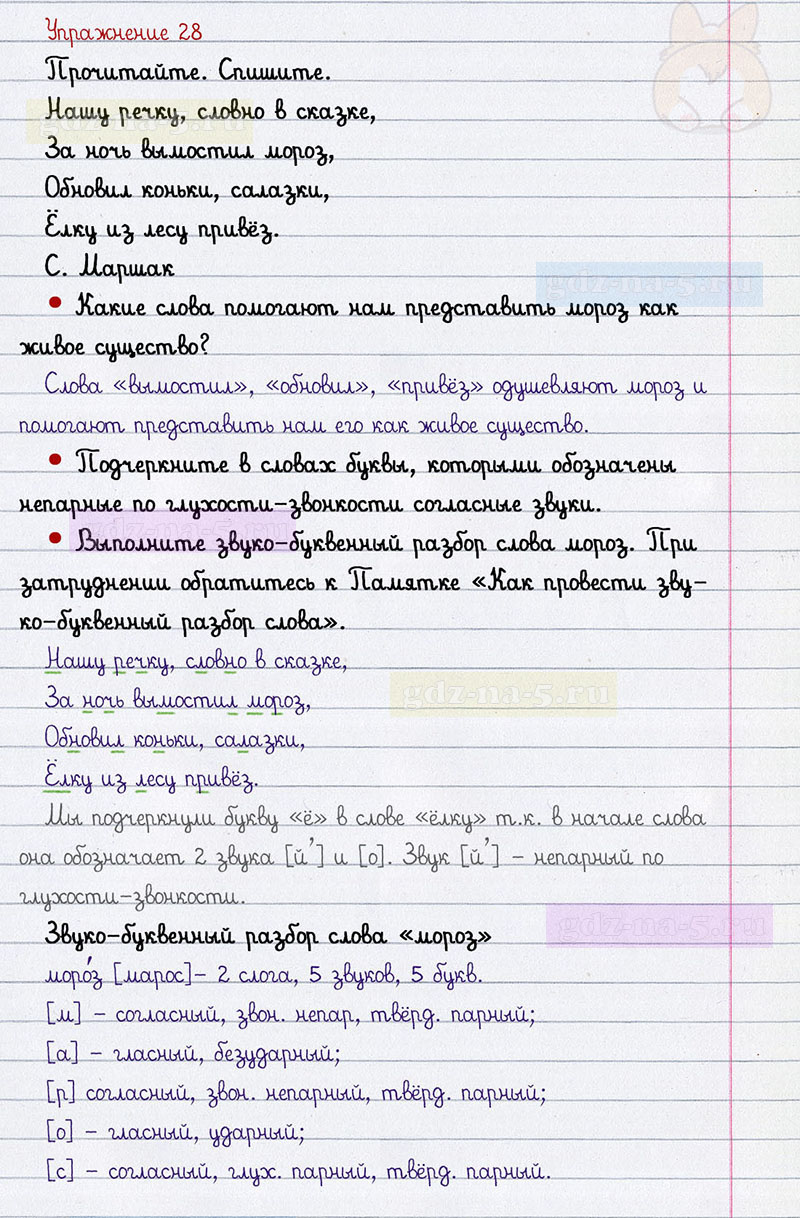 Упражнение 28
Прочитайте. Спишите.
Нашу речку, словно в сказке,
gdz-na-5.ru
За ночь вымостил мороз,
Обновил коньки, салазки,
Ёлку из лесу привёз.
С. Маршак
gdz-na-5.ru
• Какие слова помогают нам представить мороз как
живое существо?
Слова «вымостил», «обновил», «привёз» одушевляют мороз и
помогают представить нам его как живое существо.
• Подчеркните в словах буквы, которыми обозначены
непарные по глухости-звонкости согласные звуки.
gdz-na-5.ru
• Выполните звуко-буквенный разбор слова мороз. При
затруднении обратитесь к Памятке «Как провести зву-
ко-буквенный разбор слова».
Нашу речку, словно в сказке,
За ночь вымостил мороз,
gdz-na-5.ru
Обновил коньки, салазки,
Ёлку из лесу привёз.
Мы подчеркнули букву «ё» в слове «ёлку» т.к. в начале слова
она обозначает 2 звука [й’] и [о]. Звук [й’] – непарный по
глухости-звонкости.
gdz-na-5.ru
Звуко-буквенный разбор слова «мороз»
моро́з [марос]– 2 слога, 5 звуков, 5 букв.
[м] – согласный, звон. непар, твёрд. парный;
[а] – гласный, безударный;
[р] согласный, звон. непарный, твёрд. парный;
[о] – гласный, ударный;
[с] – согласный, глух. парный, твёрд. парный.